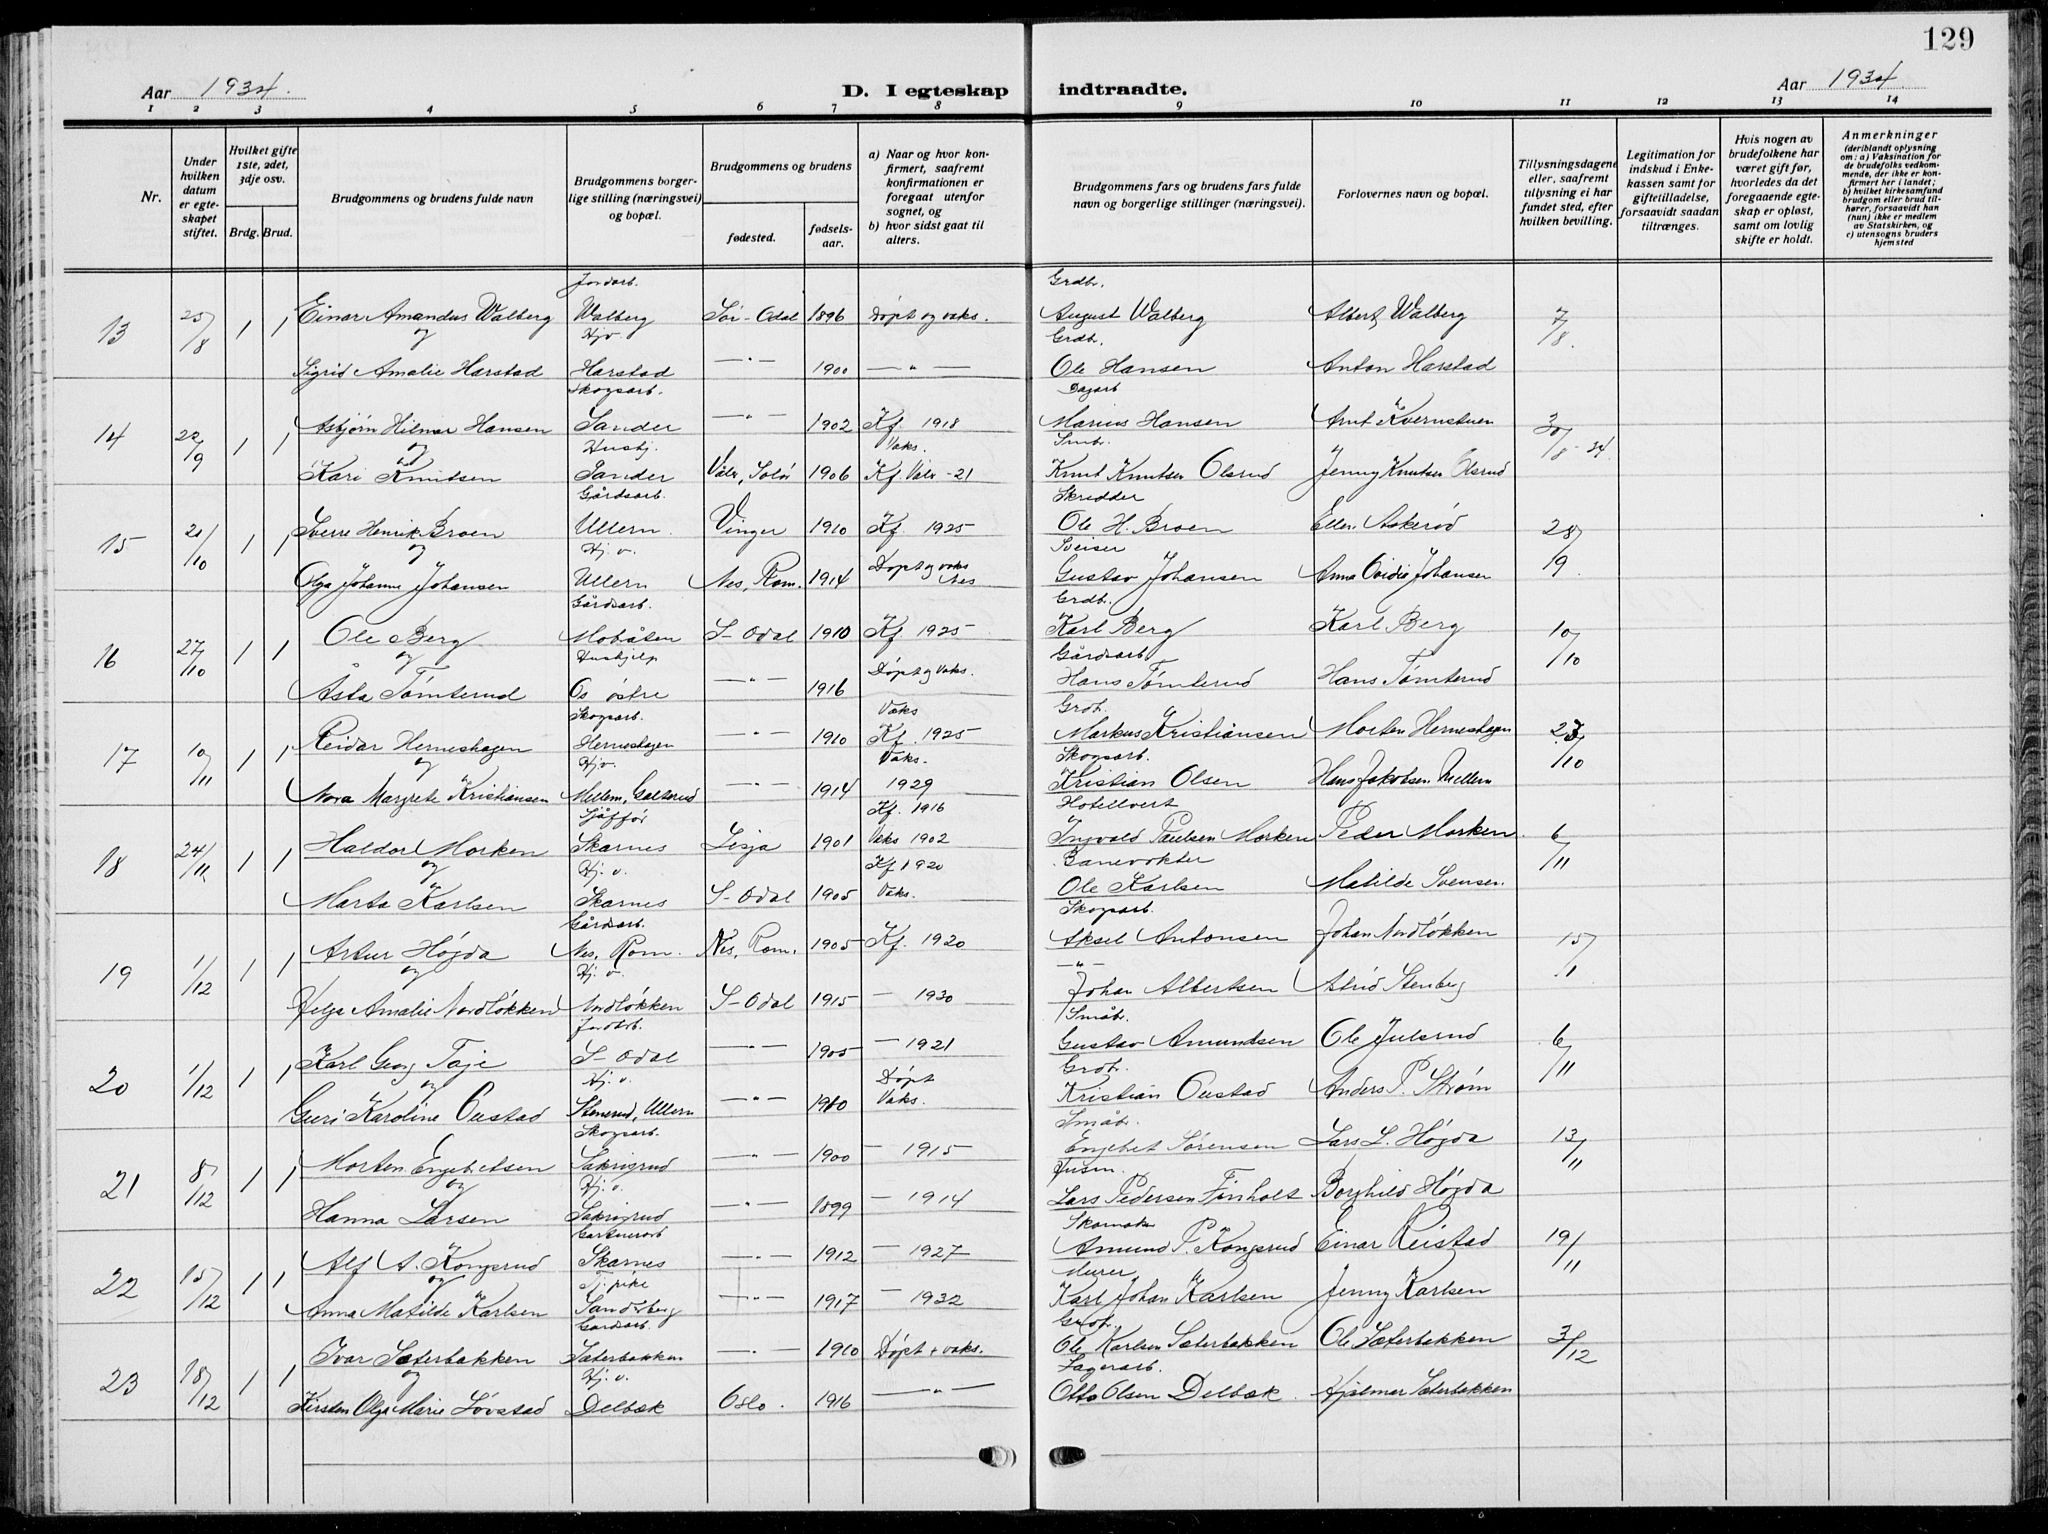 129
Aar 1934. D. I egteskap indtraadte. Aar 1934
1 2 3 4 5 6 7 8 9 10 11 12 13 14
Nr.
Under hvilken datum er egteskapet stiftet.
Hvilket gifte 1ste, 2det, 3dje osv.
Brdg. Brud.
Brudgommens og brudens fulde navn
Brudgommens borgerlige stilling (næringsvei) og bopæl.
Brudgommens og brudens
fødested. fødselsaar.
a) Naar og hvor konfirmert, saafremt konfirmationen er foregaat utenfor sognet, og
b) hvor sidst gaat til alters.
Brudgommens fars og brudens fars fulde navn og borgerlige stillinger (næringsvei).
Forlovernes navn og bopæl.
Tillysningsdagene eller, saafremt tillysning ei har fundet sted, efter hvilken bevilling.
Legitimation for indskud i Enkekassen samt for giftetilladelse, forsaavidt saadan tiltrænges.
Hvis nogen av brudefolkene har været gift før, hvorledes da det foregaaende egteskap er opløst, samt om lovlig skifte er holdt.
Anmerkninger
(deriblandt oplysning om: a) Vaksination for de brudefolks vedkommende, der ikke er konfirmert her i landet; b) hvilket kirkesamfund brudgom eller brud tilhører, forsaavidt han (hun) ikke er medlem av Statskirken, og c) utensogns bruders hjemsted
Jordarb. Grdbr.
13 25/8 1 1 Einar Amandus Walberg Walberg Sör-Odal 1896 Døpt og vaks. August Walberg Albert Walberg 7/8.
og Hjv. Grdb.
Sigrid Amalie Harstad Harstad —"— 1900 —"— Ole Hansen Anton Harstad
Skogsarb. Dagarb
14 22/9 1 1 Asbjørn Hilmar Hansen Sander —"— 1902 Kf. 1918 Marius Hansen Arnt Kvernstuen 30/8-34
og Hushj. Vaks. Smbr.
Kari Knutsen Sander Våler, Solør 1906 Kf. Våler -21 Knut Knutsen Olsrud Jenny Knutsen Olsrud
Gårdsarb. Skredder
15 20/10 1 1 Sverre Henrik Broen Ullern Vinger 1910 Kf. 1925 Ole H. Broen Ellen Askerød 28/9.
og Hj. v. Sveiser
Olga Johanne Johansen Ullern Nes, Rom. 1914 Døpt og vaks Nes Gustav Johansen Anna Ovidia Johansen
Gårdsarb. Grdb.
16 27/10 1 1 Ole Berg Mobåten S-Odal 1910 Kf 1925 Karl Berg Karl Berg 10/10
og Hushjelp Gårdsarb
Asta Tömterud Os østre —"— 1916 Døpt og Vaks. Hans Tømterud Hans Tømterud
Skogsarb. Vaks Grdb.
17 10/11 1 1 Reidar Herneshagen Herneshagen —"— 1910 Kf. 1925 Markus Kristiansen Morten Herneshagen 23/10
og Hjv. Vaks. Skogsarb.
Nora Margrete Kristiansen Mellem, Galterud —"— 1914 1929 Kristian Olsen Hans Jakobsen Mellem
Sjåffør Kf. 1916 Hotellvert
18 24/11 1 1 Haldor Morken Skarnes Lesja 1901 Vaks 1902 Ingvald Paulsen Morken Peder Morken 6/11
og Hj. v. Kf 1920 Banevokter
Marta Karlsen Skarnes S-Odal 1905 Vaks. Ole Karlsen Matilde Svensen
Gårdsarb. Skogsarb.
19 1/12 1 1 Artur Högda Nes, Rom. Nes, Rom. 1905 Kf. 1920 Aksel Antonsen Johan Nordløkken 15/11
og Hj. v. —"—
Helga Amalie Nordløkken Nordløkken S-Odal 1915 — 1930 Johan Albertsen Astrid Stenberg
Jordarb. Småb.
20 1/12 1 1 Karl Georg Taje S-Odal —"— 1905 — 1921 Gustav Amundsen Ole Julsrud 6/11
og Hj. v. Døpt Grdb.
Guri Karoline Oustad Stenerud, Ullern —"— 1910 Vaks. Kristian Oustad Anders P. Strøm
Skogsarb. Småbr.
21 8/12 1 1 Morten Engebretsen Sakrisrud —"— 1900 — 1915 Engebet Sørensen Lars L. Högda 13/11
og Hj. v.
Hanna Larsen Sakrisrud —"— 1899 — 1914 Lars Pedersen Finholt Borghild Högda
Gartnerarb Skomaker
22 15/12 1 1 Alf A. Kongsrud Skarnes —"— 1912 — 1927 Amund P. Kongsrud Einar Reistad 19/11
og Tj. pike Murer
Anna Matilde Karlsen Sandsberg —"— 1917 — 1932 Karl Johan Karlsen Jenny Karlsen
Gårdsarb. Grdb.
23 18/12 1 1 Ivar Sæterbakken Sæterbakken —"— 1910 Døpt + vaks. Ole Karlsen Sæterbakken Ole Sæterbakken 3/12
og Hj. v. Lagerarb.
Kirsten Olga Marie Lövstad Delbæk Oslo. 1916 —"— Otto Olsen Delbæk. Hjalmar Sæterbakken